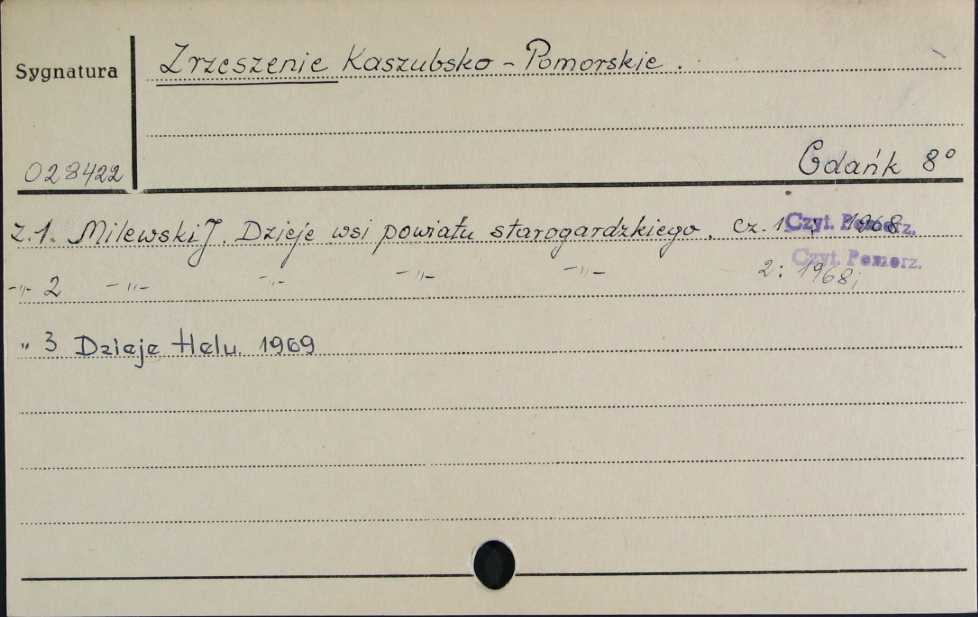 Sygnatura
Zrzeszenie Kaszubsko - Pomorskie.
028422
Gdańk 8°
z.1. Milewski J. Dzieje wsi powiatu starogardzkiego. cz. 1: 1968
Czyt. Pomorz.
-"- 2 -"- -"- -"- -"- 2: 1968;
Czyt. Pomorz.
" 3 Dzieje Helu. 1969